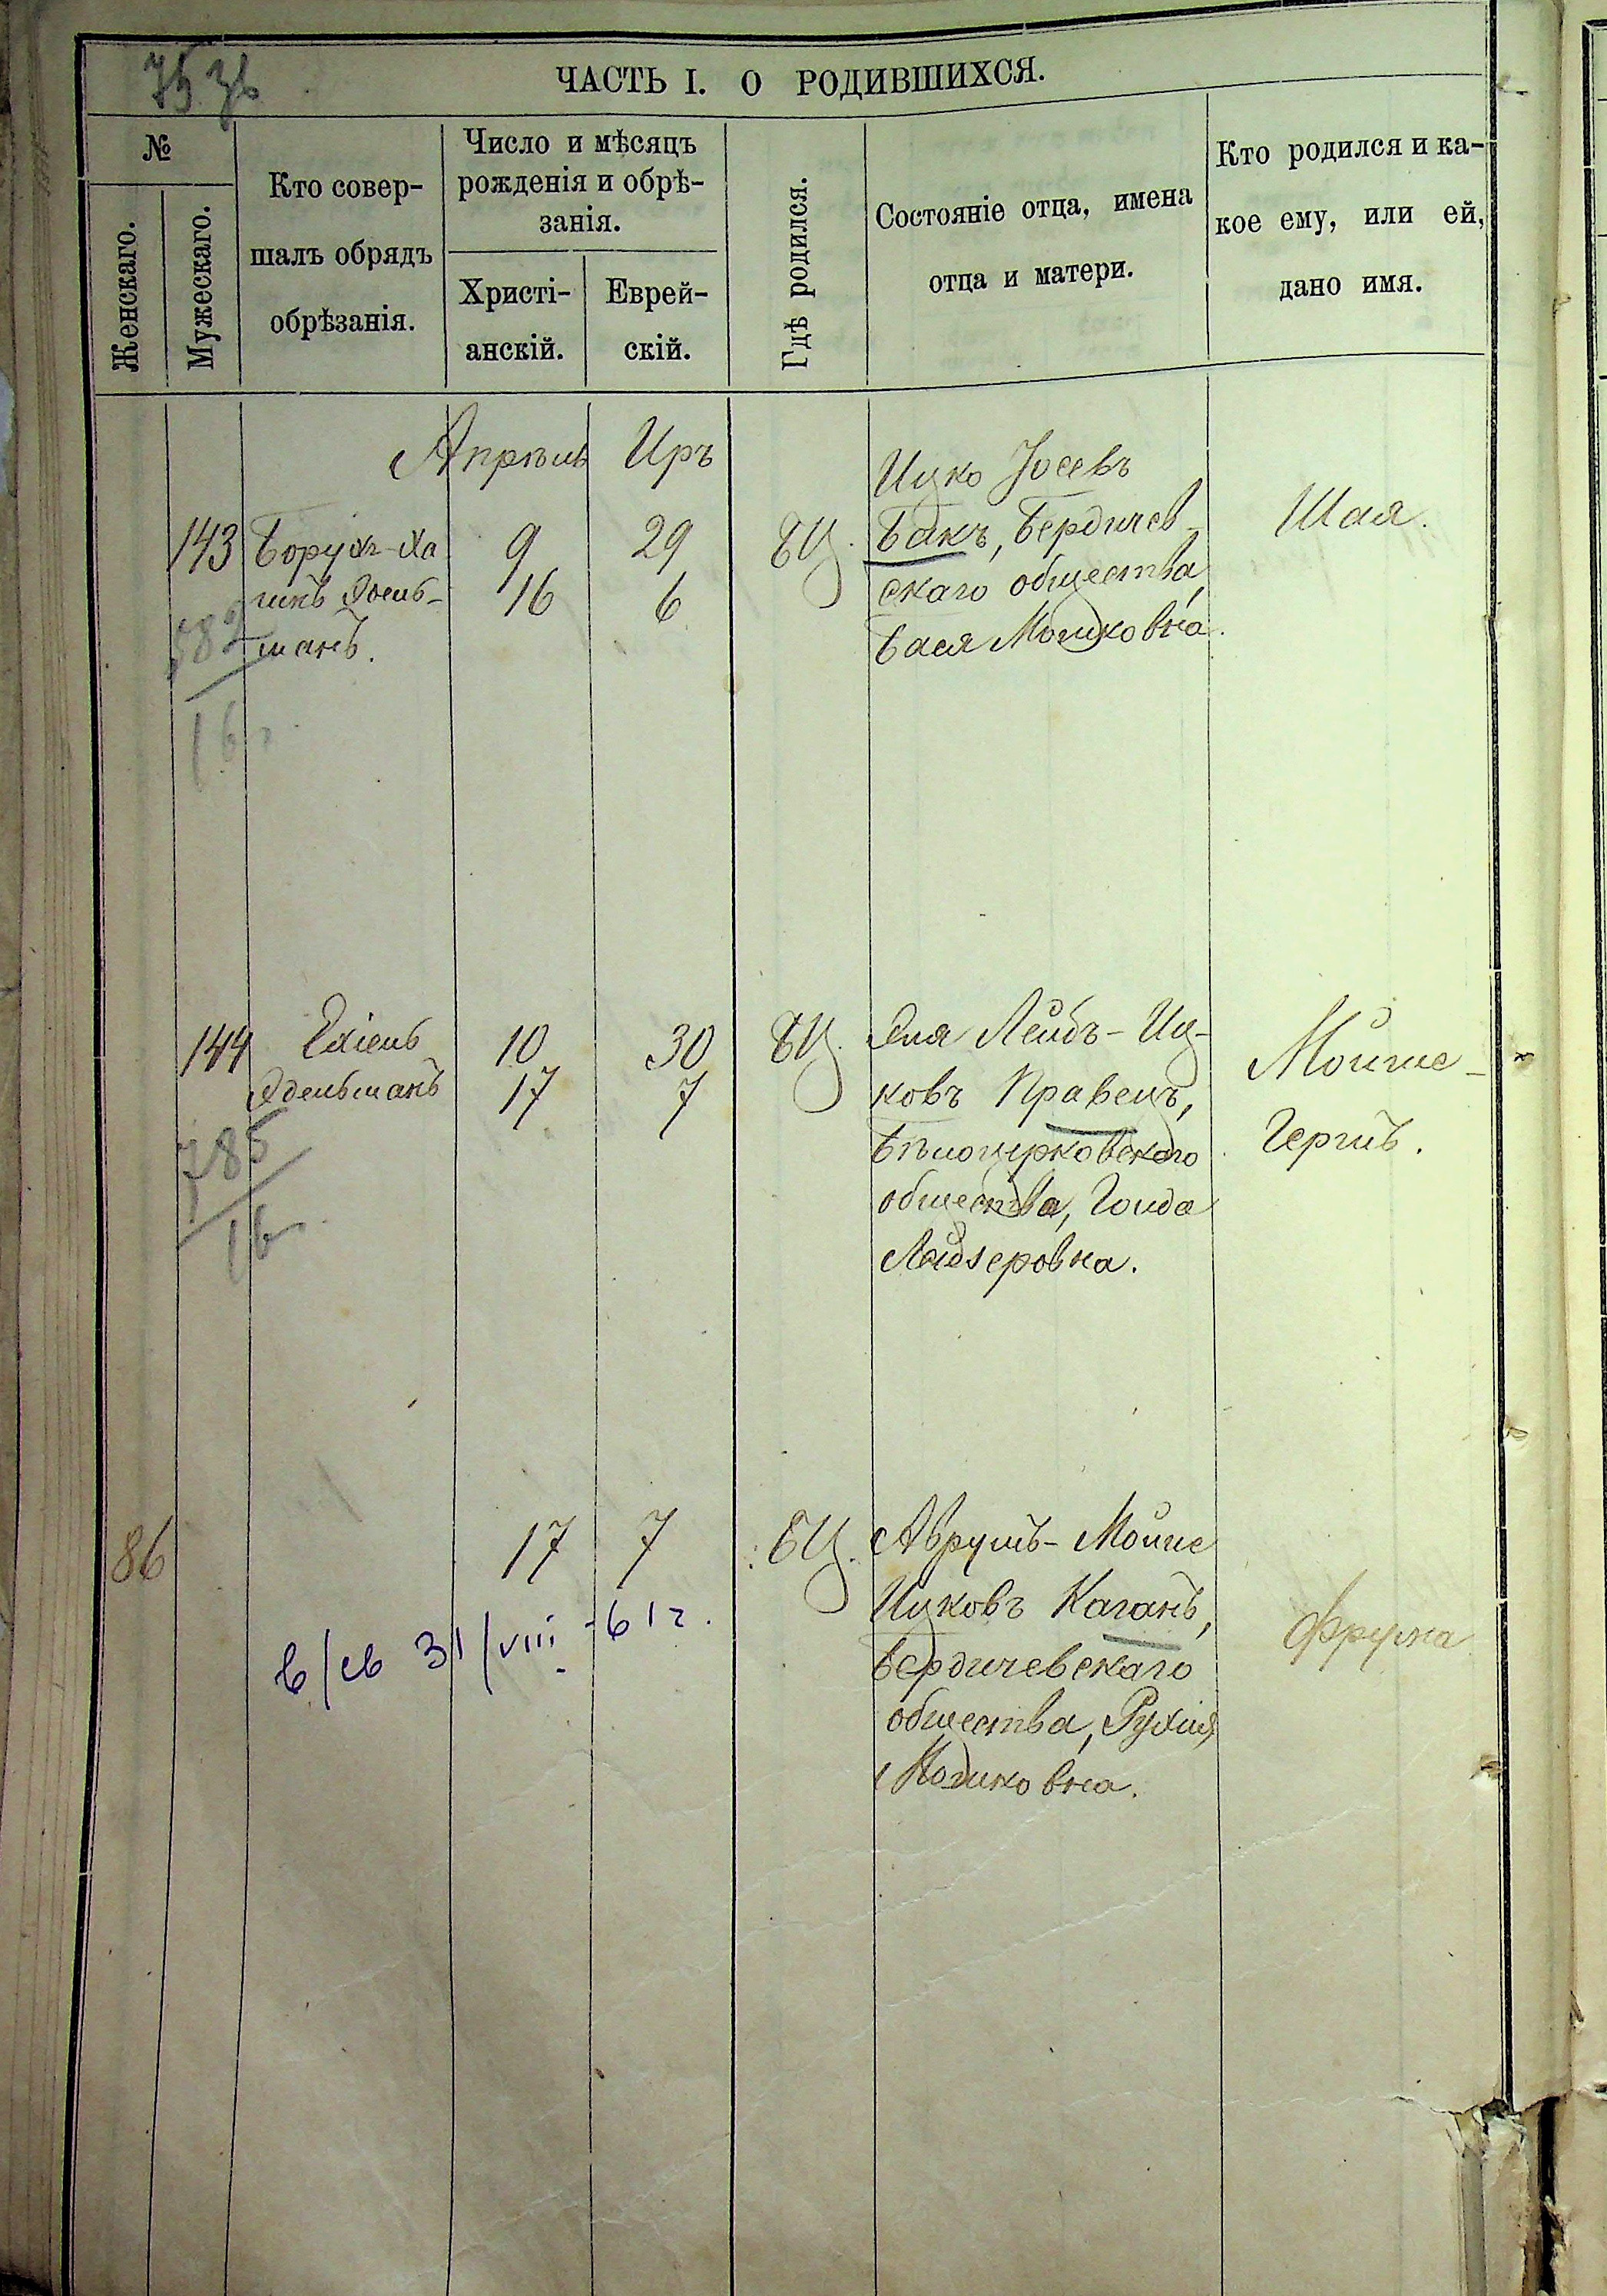 75 зв
ЧАСТЬ I. О РОДИВШИХСЯ.
№
Женскаго.
Мужескаго.
Кто совер-
шалъ обрядъ
обрѣзанія.
Число и мѣсяцъ
рожденія и обрѣ-
занія.
Христі-
анскій.
Еврей-
скій.
Гдѣ родился.
Состояніе отца, имена
отца и матери.
Кто родился и ка-
кое ему, или ей,
дано имя.
Апрѣль Иръ
143
Борухъ-Ха
имъ
манъ.
9 29
16 6
БЦ.
Ицко Іосевъ
Бакъ, Бердичев-
скаго общества,
Бася Мошковна.
Шая.
16 г.
144
Ехіель
Эдельманъ
10 30
17 7
БЦ.
Эля Лейбъ-Иц-
ковъ Правецъ,
Бѣлоцерковскаго
общества, Голда
Лейзеровна.
Мойше-
Гершъ.
785
16 г.
86
17 7
БЦ.
Аврумъ-Мойше
Ицковъ Каганъ,
Бердичевскаго
общества, Рухля
Мошковна.
Фрума
в/св 31/VIII-61 г.